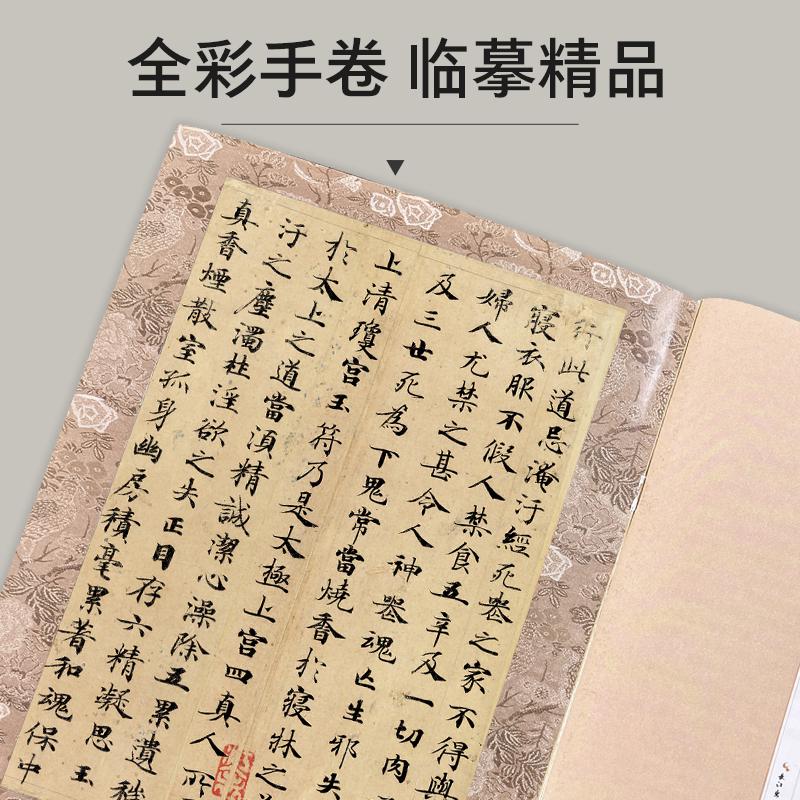 全彩手卷 临摹精品
行此道忌淹汙經死喪之家不得與
寢衣服不假人禁食五辛及一切肉
婦人尤禁之甚令人神喪魂亡生邪失
及三世死為下鬼常當燒香於寢牀之
上清瓊宮玉符乃是太極上宮四真人所
於太上之道當須精誠潔心澡除五累遺穢
汙之塵濁杜淫欲之失正目存六精凝思玉
真香煙散室孤身幽房積毫累著和魂保中